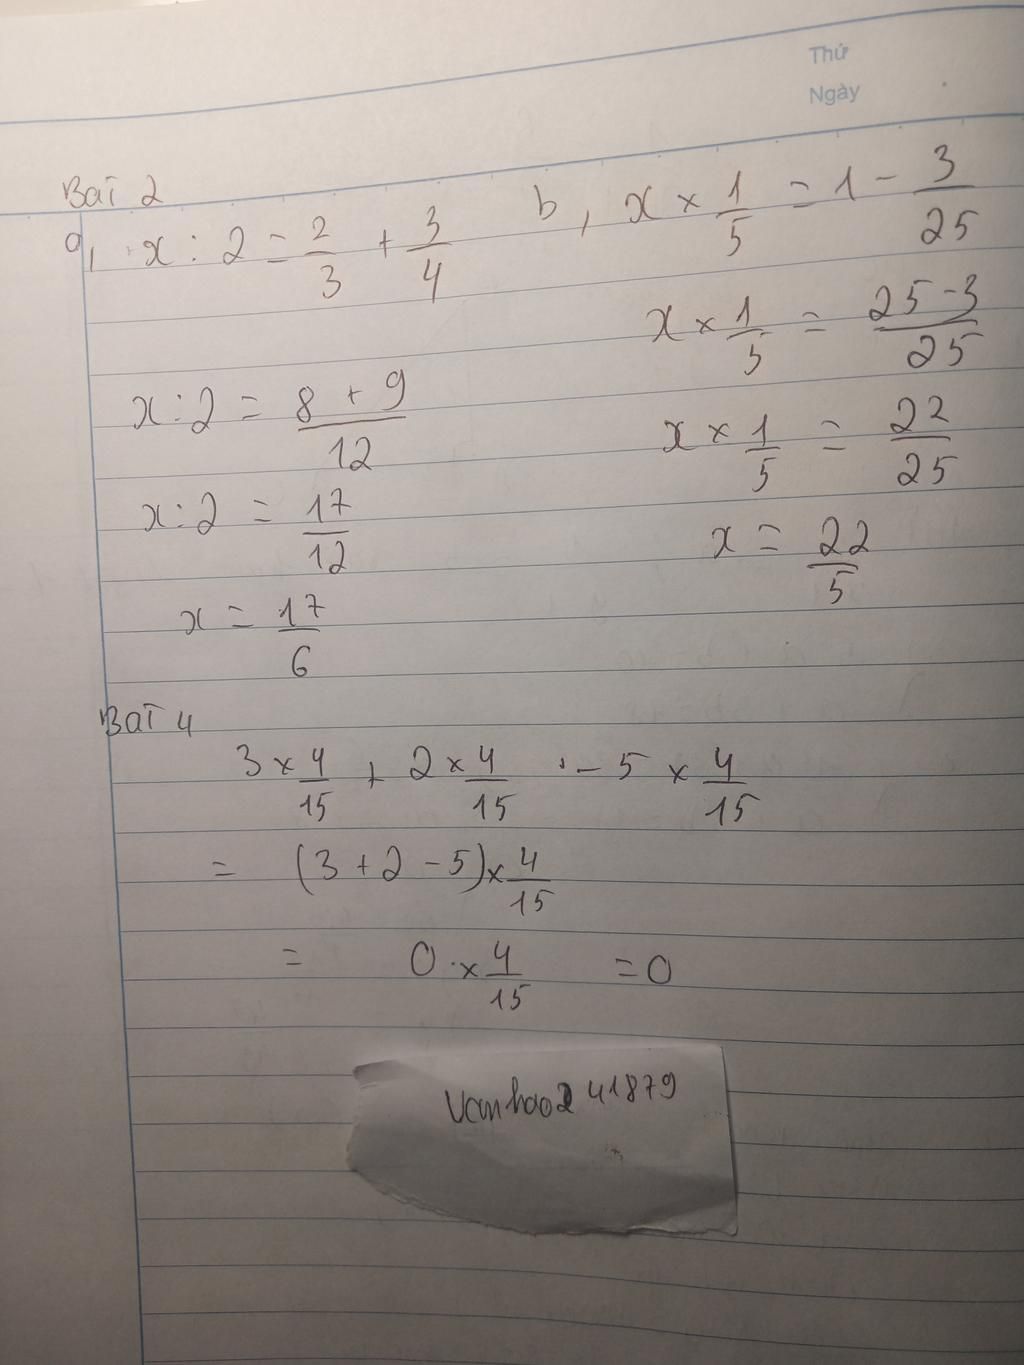 Thứ
Ngày
Bài 2
a, x : 2 = 2/3 + 3/4
x : 2 = (8 + 9)/12
x : 2 = 17/12
x = 17/6
b, x × 1/5 = 1 - 3/25
x × 1/5 = (25 - 3)/25
x × 1/5 = 22/25
x = 22/5
Bài 4
3 × 4/15 + 2 × 4/15 - 5 × 4/15
= (3 + 2 - 5) × 4/15
= 0 × 4/15 = 0
Vanhao241879